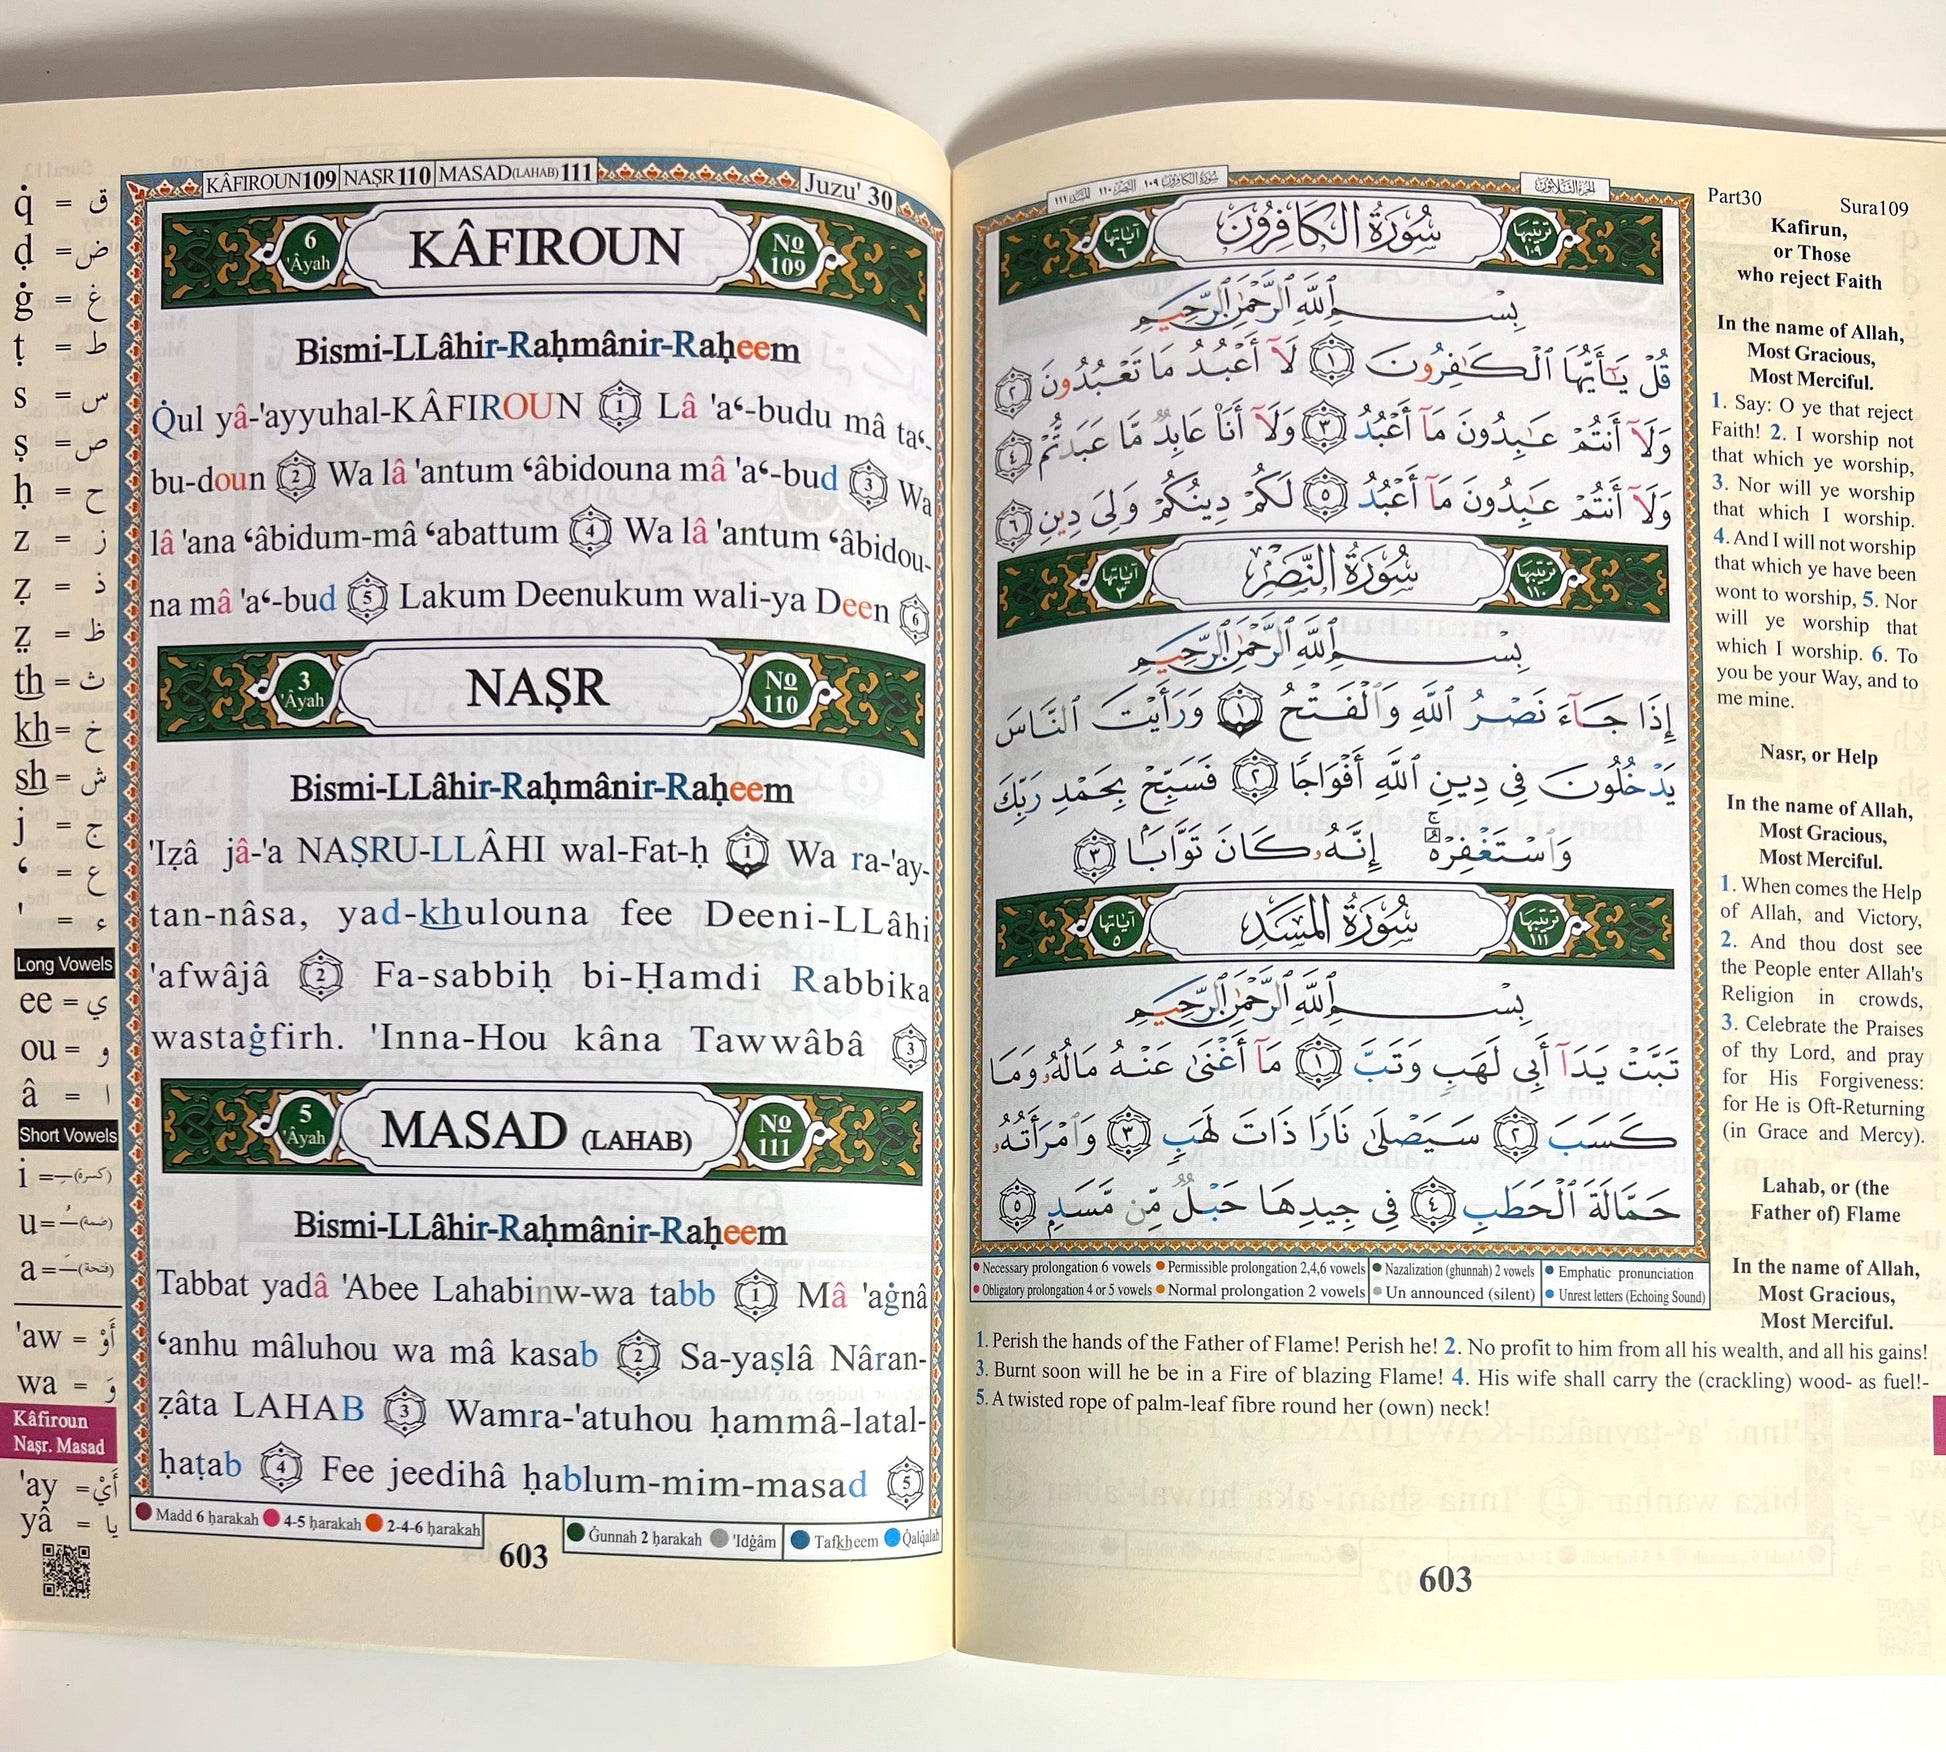 KÂFIROUN109 NAṢR110 MASAD(LAHAB)111 Juzu' 30
6 'Âyah KÂFIROUN No 109
Bismi-LLâhir-Raḥmânir-Raḥeem
Q̇ul yâ-'ayyuhal-KÂFIROUN 1 Lâ 'aʻ-budu mâ taʻ-
bu-doun 2 Wa lâ 'antum ʻâbidouna mâ 'aʻ-bud 3 Wa
lâ 'ana ʻâbidum-mâ ʻabattum 4 Wa lâ 'antum ʻâbidou-
na mâ 'aʻ-bud 5 Lakum Deenukum wali-ya Deen 6
3 'Âyah NAṢR No 110
Bismi-LLâhir-Raḥmânir-Raḥeem
'Iẓâ jâ-'a NAṢRU-LLÂHI wal-Fat-ḥ 1 Wa ra-'ay-
tan-nâsa, yad-khulouna fee Deeni-LLâhi
'afwâjâ 2 Fa-sabbiḥ bi-Ḥamdi Rabbika
wastaġfirh. 'Inna-Hou kâna Tawwâbâ 3
5 'Âyah MASAD (LAHAB) No 111
Bismi-LLâhir-Raḥmânir-Raḥeem
Tabbat yadâ 'Abee Lahabinw-wa tabb 1 Mâ 'aġnâ
ʻanhu mâluhou wa mâ kasab 2 Sa-yaṣlâ Nâran-
ẓâta LAHAB 3 Wamra-'atuhou ḥammâ-latal-
ḥaṭab 4 Fee jeedihâ ḥablum-mim-masad 5
Madd 6 ḥarakah 4-5 ḥarakah 2-4-6 ḥarakah
Ġunnah 2 ḥarakah 'Idġâm Tafkheem Q̇alq̇alah
603
q̇ = ق
ḍ = ض
ġ = غ
ṭ = ط
s = س
ṣ = ص
ḥ = ح
z = ز
ẓ = ذ
ẓ̤ = ظ
th = ث
kh = خ
sh = ش
j = ج
ʻ = ع
' = ء
Long Vowels
ee = ي
ou = و
â = ا
Short Vowels
i = ـِ (كسرة)
u = ـُ (ضمة)
a = ـَ (فتحة)
'aw = أَوْ
wa = وَ
Kâfiroun
Naṣr. Masad
'ay = أَيْ
yâ = يا
سُورَةُ الكَافِرُونَ ١٠٩ النَّصْر ١١٠ المَسَد ١١١ الجزء الثلاثون
ترتيبها ١٠٩ سُورَةُ الكَافِرُونَ آياتها ٦
بِسْمِ ٱللَّهِ ٱلرَّحْمَٰنِ ٱلرَّحِيمِ
قُلْ يَٰٓأَيُّهَا ٱلْكَٰفِرُونَ ١ لَآ أَعْبُدُ مَا تَعْبُدُونَ ٢
وَلَآ أَنتُمْ عَٰبِدُونَ مَآ أَعْبُدُ ٣ وَلَآ أَنَا۠ عَابِدٌ مَّا عَبَدتُّمْ ٤
وَلَآ أَنتُمْ عَٰبِدُونَ مَآ أَعْبُدُ ٥ لَكُمْ دِينُكُمْ وَلِىَ دِينِ ٦
ترتيبها ١١٠ سُورَةُ النَّصْرِ آياتها ٣
بِسْمِ ٱللَّهِ ٱلرَّحْمَٰنِ ٱلرَّحِيمِ
إِذَا جَآءَ نَصْرُ ٱللَّهِ وَٱلْفَتْحُ ١ وَرَأَيْتَ ٱلنَّاسَ
يَدْخُلُونَ فِى دِينِ ٱللَّهِ أَفْوَاجًا ٢ فَسَبِّحْ بِحَمْدِ رَبِّكَ
وَٱسْتَغْفِرْهُ ۚ إِنَّهُۥ كَانَ تَوَّابًۢا ٣
ترتيبها ١١١ سُورَةُ المَسَدِ آياتها ٥
بِسْمِ ٱللَّهِ ٱلرَّحْمَٰنِ ٱلرَّحِيمِ
تَبَّتْ يَدَآ أَبِى لَهَبٍ وَتَبَّ ١ مَآ أَغْنَىٰ عَنْهُ مَالُهُۥ وَمَا
كَسَبَ ٢ سَيَصْلَىٰ نَارًا ذَاتَ لَهَبٍ ٣ وَٱمْرَأَتُهُۥ
حَمَّالَةَ ٱلْحَطَبِ ٤ فِى جِيدِهَا حَبْلٌ مِّن مَّسَدٍۭ ٥
Necessary prolongation 6 vowels Permissible prolongation 2,4,6 vowels Nazalization (ghunnah) 2 vowels Emphatic pronunciation
Obligatory prolongation 4 or 5 vowels Normal prolongation 2 vowels Un announced (silent) Unrest letters (Echoing Sound)
Part30 Sura109
Kafirun,
or Those
who reject Faith
In the name of Allah,
Most Gracious,
Most Merciful.
1. Say: O ye that reject
Faith! 2. I worship not
that which ye worship,
3. Nor will ye worship
that which I worship.
4. And I will not worship
that which ye have been
wont to worship, 5. Nor
will ye worship that
which I worship. 6. To
you be your Way, and to
me mine.
Nasr, or Help
In the name of Allah,
Most Gracious,
Most Merciful.
1. When comes the Help
of Allah, and Victory,
2. And thou dost see
the People enter Allah's
Religion in crowds,
3. Celebrate the Praises
of thy Lord, and pray
for His Forgiveness:
for He is Oft-Returning
(in Grace and Mercy).
Lahab, or (the
Father of) Flame
In the name of Allah,
Most Gracious,
Most Merciful.
1. Perish the hands of the Father of Flame! Perish he! 2. No profit to him from all his wealth, and all his gains!
3. Burnt soon will he be in a Fire of blazing Flame! 4. His wife shall carry the (crackling) wood- as fuel!-
5. A twisted rope of palm-leaf fibre round her (own) neck!
603